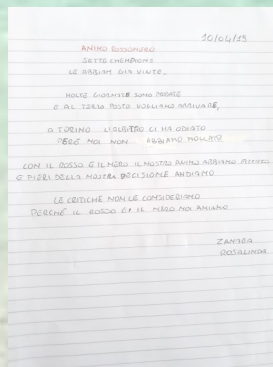 10/04/19
ANIMO ROSSONERO
SETTE CHEMPIONS
LE ABBIAM GIÀ VINTE,
MOLTE GIORNATE SONO PASSATE
E AL TERZO POSTO VOGLIAMO ARRIVARE,
A TORINO L'ARBITRO CI HA ODIATO
PERÒ NOI NON ABBIAMO MOLLATO
CON IL ROSSO E IL NERO IL NOSTRO ANIMO ABBIAMO ACCESO
E FIERI DELLA NOSTRA DECISIONE ANDIAMO
LE CRITICHE NON LE CONSIDERIAMO
PERCHÉ IL ROSSO E IL NERO NOI AMIAMO
ZANDRA
ROSALINDA